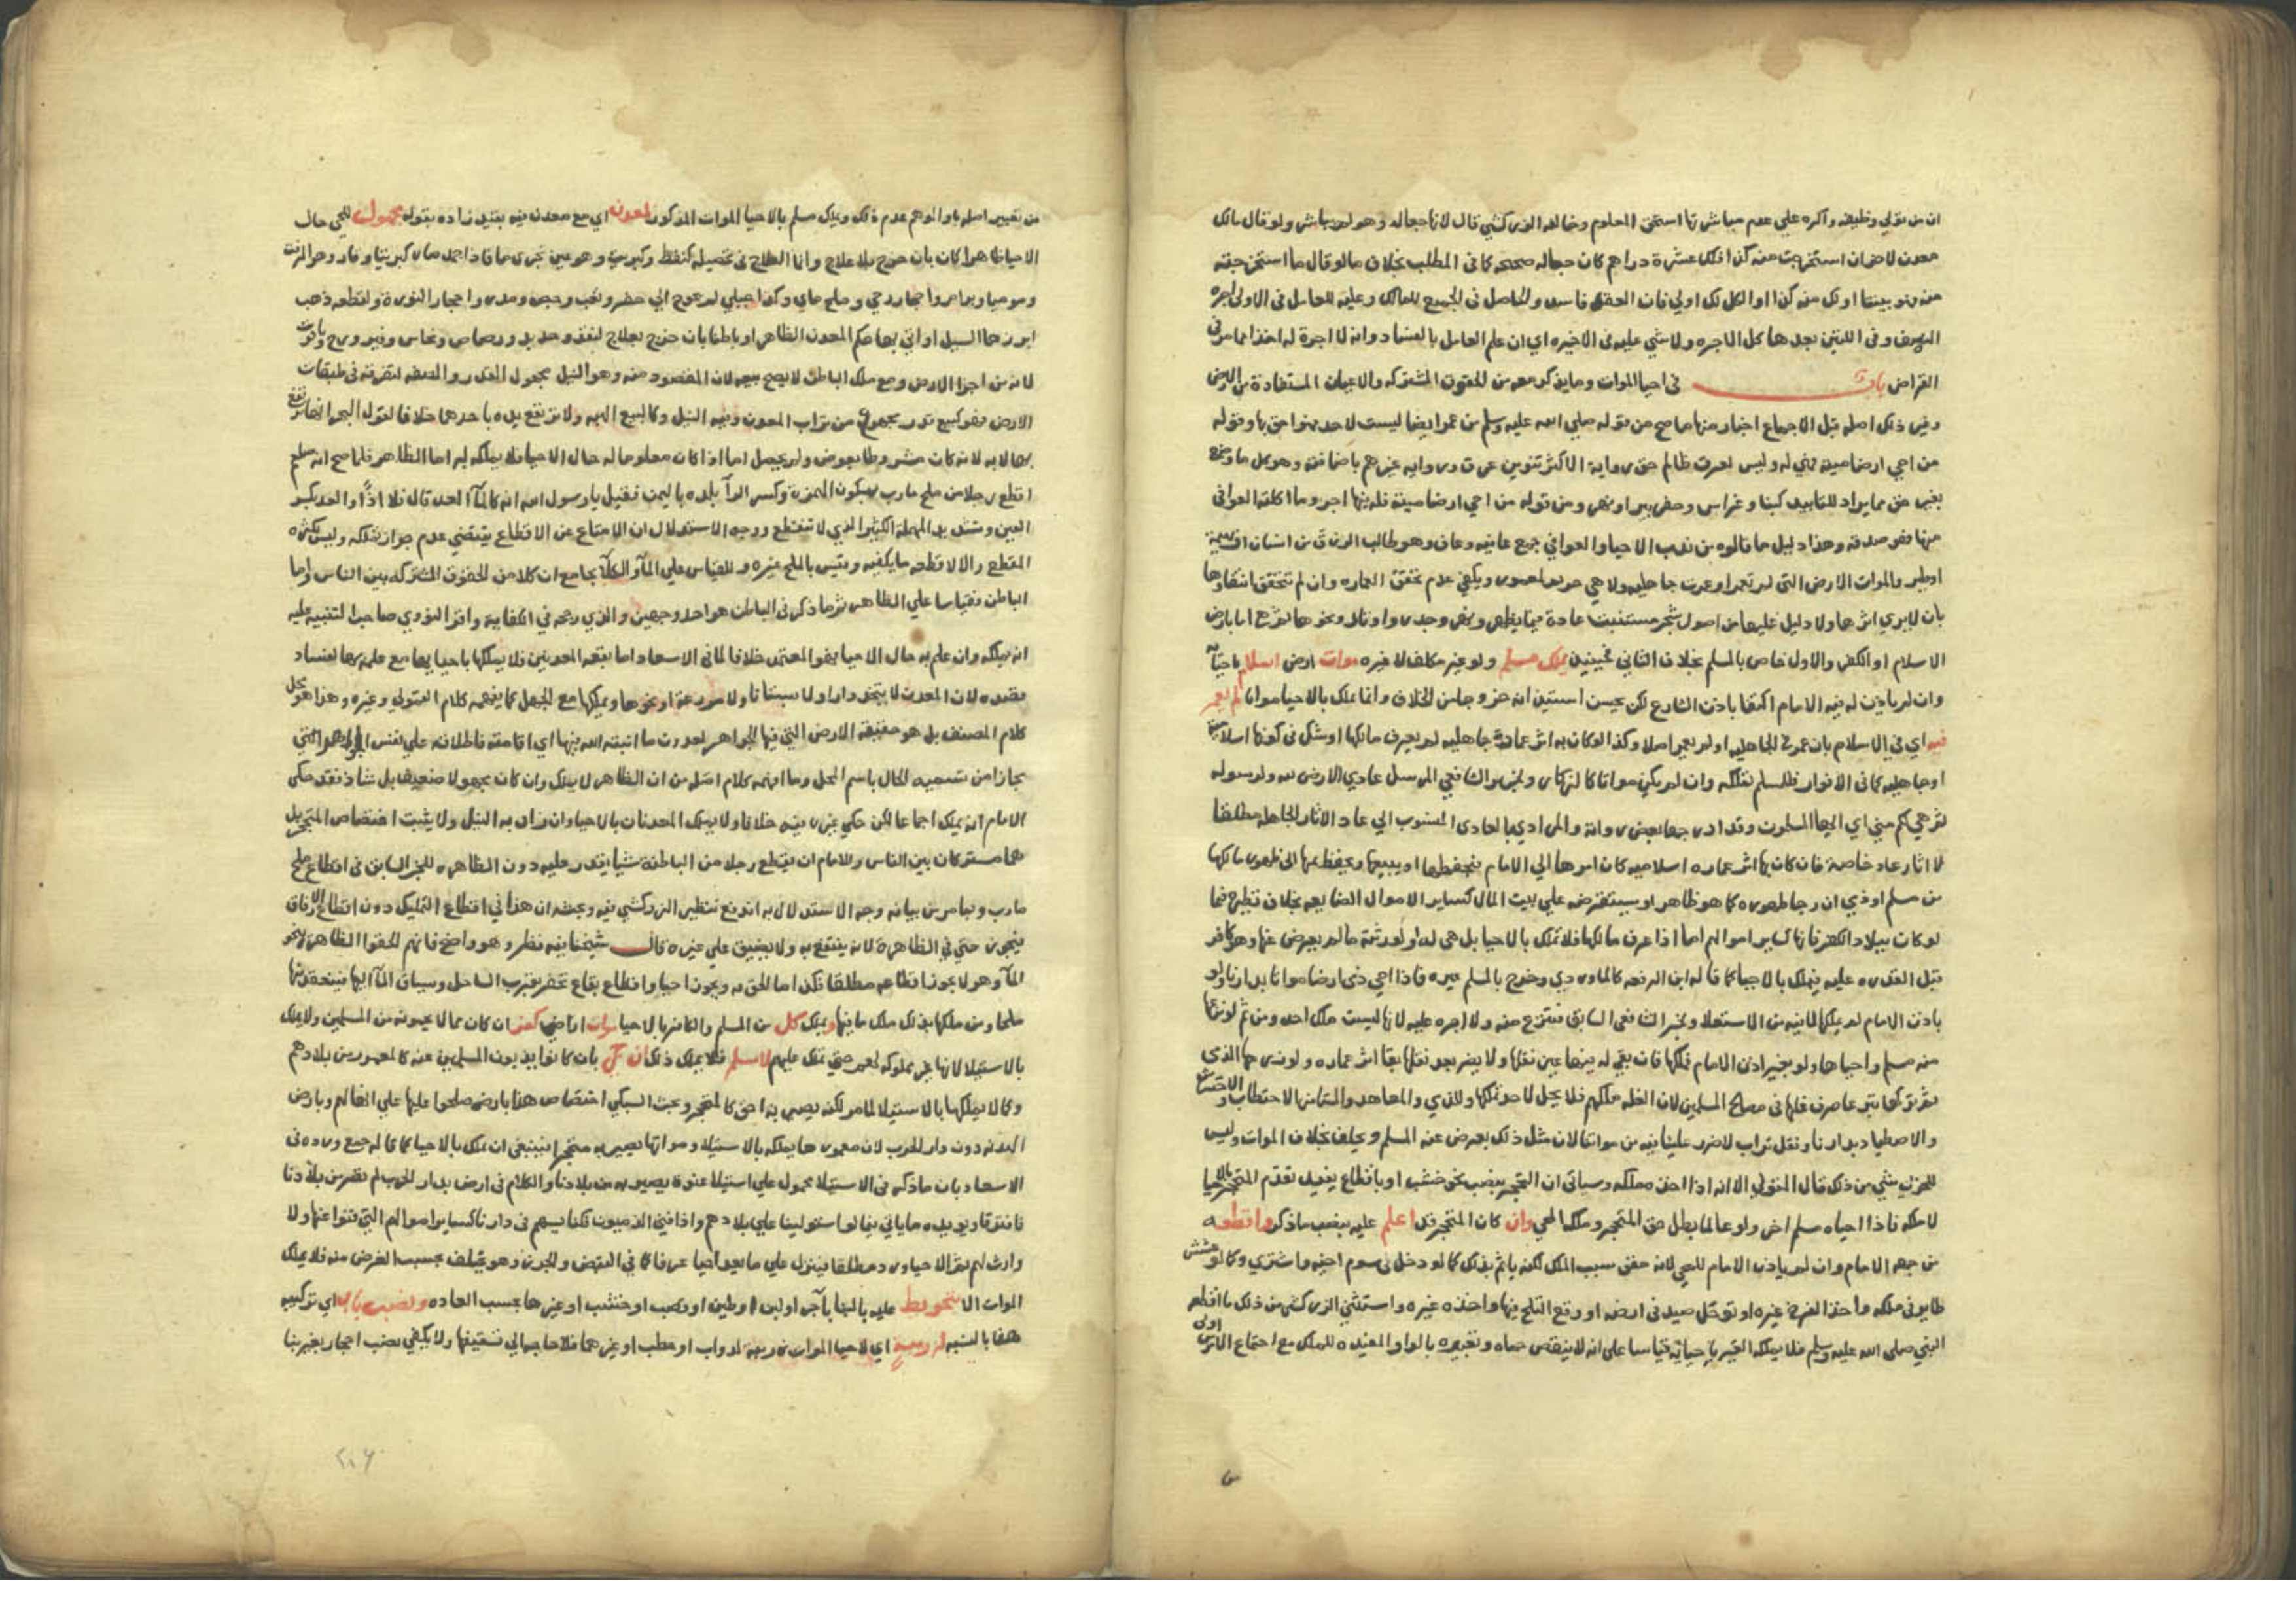 ان من تولي وظيفه واكره علي عدم مباشرتها استحق المعلوم وخالفه الزركشي قال لانها جعاله وهو لم يباشر ولو قال مالك
معدن لاخر ان استخرجت منه كذا فلك عشرة دراهم كان جعاله صحيحه كما في المطلب بخلاف ما لو قال ما استخرجته
منه فهو بيننا او لك منه كذا او الكل لك اولي فان العقد فاسد والحاصل في الجميع للمالك وعليه للعامل في الاولي اجره
النصف وفي اللتين بعدها كل الاجره ولا شي عليه في الاخيره اي ان علم العامل بالفساد وانه لا اجرة له اخذا مما مر في
القراض باب في احيا الموات وما يذكر معه من الحقوق المشتركه والاعيان المستفادة من الارض
وفي ذلك اصله قبل الاجماع اخبار منها ما صح من قوله صلي الله عليه وسلم من عمر ارضا ليست لاحد فهو احق بها وقوله
من احي ارضا ميتة فهي له وليس لعرق ظالم حق رواية الاكثر تنوين عرق ورواية غيرهم باضافته وهو كل ما وضع
بغير حق مما يراد للتابيد كبنا وغراس وحفر بير او نهر ومن قوله من احي ارضا ميتة فله فيها اجر وما اكلته العوافي
منها فهو صدقه وهذا دليل ما قالوه من ندب الاحيا والعوافي جمع عافيه وعاف وهو طالب الرزق من انسان او بهيمة
او طير والموات الارض التي لم تعمر او عمرت جاهليه ولا هي حريم لمعمور ويكفي عدم تحقق العماره وان لم نتحقق انتفاوها
بان لا يري اثرها ولا دليل عليها من اصول شجر مستنبت عادة فيما يظهر ونهر وجدر واوتاد ونحوها ثم شرع اما بارض
الاسلام او الكفر والاول خاص بالمسلم بخلاف الثاني فحينيذ يملك مسلم ولو غير مكلف لا غيره موات ارض اسلام باحيا
وان لم ياذن له فيه الامام اكتفا باذن الشارع لكن يحسن استيذانه خروجا من الخلاف وانما يملك بالاحيا مواتا لم يعمر
فيه اي في الاسلام بان عمر في الجاهليه او لم يعمر اصلا وكذا لو كان به اثر عمارة جاهليه لم يعرف مالكها او شك في كونها اسلامية
او جاهليه كما في الانوار فللمسلم تملكه وان لم يكن مواتا كالركاز ولخبر الشافعي المرسل عادي الارض لله ولرسوله
ثم هي لكم مني اي ايها المسلمون وقد اورد جمعا بعض رواته والمراد بالعادي المنسوب الي عاد الاثار الجاهليه مطلقا
لا اثار عاد خاصة فان كان بها اثر عماره اسلاميه كان امرها الي الامام فيحفظها او يبيعها ويحفظ ثمنها الي ظهور مالكها
من مسلم او ذمي ان رجا ظهوره كما هو ظاهر او يستقرضه علي بيت المال كساير الاموال الضايعه بخلاف
لو كان ببلاد الكفر فانها كساير اموالهم اما اذا عرف مالكها فلا تملك بالاحيا بل هي له او لورثته ما لم يعرض عنها وهو كافر
قبل القدره عليه فيملك بالاحيا كما قاله ابن الرفعه كالماوردي وخرج بالمسلم غيره فاذا احي ذمي ارضا مواتا بدارنا ولو
باذن الامام لم يملكها لما فيه من الاستعلا ولخبر الشافعي السابق فتنزع منه ولا اجره عليه لانها ليست ملك احد ومن ثم لو نزعها
منه مسلم واحياها ولو بغير اذن الامام ملكها فان بقي له فيها عين نقلها ولا يضر بعد نقلها بقا اثر عماره ولو زرعها الذمي
ثم تركها تبرعا صرف غلتها في مصالح المسلمين لان الغله ملكهم فلا يحل لاحد تملكها وللذمي والمعاهد والمستامن الاحتطاب والاحتشاش
والاصطياد بدارنا ونقل تراب لا ضرر علينا فيه من مواتنا لان مثل ذلك يعرض عنه المسلم ويخلف بخلاف الموات وليس
للحربي شي من ذلك قال المتولي الا انه اذا اخذه ملكه وسياتي ان التحجر بنصب نحو خشب او باقطاع يفيد تقدم المتحجر بالاحيا
لا ملكه فاذا احياه مسلم اخر ولو عالما بطل حق المتحجر وملك المحي وان كان المتحجر قد اعلم عليه بنصب ما ذكر واقطعه
من جهه الامام وان لم ياذن الامام للمحي لانه حقق سبب الملك لكنه ياثم بذلك كما لو دخل في سوم اخيه واشتري وكما لو عشش
طاير في ملكه واخذ الفرخ غيره او توحل صيد في ارضه او وقع الثلج فيها واخذه غيره واستثني الزركشي من ذلك ما اقطعه
النبي صلي الله عليه وسلم فلا يملكه الغير باحيائه قياسا علي انه لا ينقض حماه وتعبيره بالواو المفيده للملك مع اجتماع الامرين اولي
من تعبير اصله باو الموهم عدم ذلك ويملك مسلم بالاحيا الموات المذكور لمعدن اي مع معدن فيه بقيد زاده بقوله مجهول للمحي حال
الاحيا ظاهرا كان بان خرج بلا علاج وانما العلاج في تحصيله كنفط وكبريت وهو عين تجري ماء فاذا جمد صار كبريتا وقار وهو الزفت
وموميا وبرام واحجار رحي وملح ماي وكذا جبلي لم يحوج الي حفر وتعب وجص ومدر واحجار النورة ولقطعه ذهب
ابرزها السيل او اتي بها حكم المعدن الظاهر او باطنا بان خرج بعلاج كنقد وحديد ورصاص ونحاس وفيروزج وياقوت
لانه من اجزا الارض ومع ملك الباطن لا يصح بيعه لان المقصود منه وهو النيل مجهول القدر والصفه لتفرقه في طبقات
الارض فهو كبيع قدر مجهول من تراب المعدن وفيه النيل وكالبيع الهبه ولا ترتفع يده باحدهما خلافا لقوله البحر انها ترتفع
بها لا به لانه كان مشروطا بعوض ولم يحصل اما اذا كان معلوما له حال الاحيا فلا يملكه به اما الظاهر فلما صح انه صلعم
اقطع رجلا من ملح مارب بسكون الهمزة وكسر الرا بلده باليمن فقيل يا رسول الله انه كالما العد قال فلا اذا والعد بكسر
العين وتشديد المهمله الكثير الذي لا ينقطع ووجه الاستدلال ان الامتناع عن الاقطاع يقتضي عدم جواز تملكه وليس لكثره
المقطع والا لاقطعه ما يكفيه وقيس بالملح غيره وللقياس علي الما والكلا بجامع ان كلا من الحقوق المشتركه بين الناس واما
الباطن فقياسا علي الظاهر ثم ما ذكر في الباطن هو احد وجهين والذي رجحه في الكفاية واقر النووي صاحب التنبيه عليه
انه يملكه وان علم به حال الاحيا فهو المعتمد خلافا لما في الاسعاد اما بقعه المعدنين فلا يملكها باحيايها مع علمه بها لفساد
قصده لان المعدن لا يتخذ دارا ولا بستانا ولا مزرعة او نحوها ويملكها مع الجهل كما يفهمه كلام المتولي وغيره وهذا هو محل
كلام المصنف بل هو حقيقه الارض التي فيها الجواهر لعدون ما اثبته الله فيها اي اقامته فاطلاقه علي نفس الجواهر
مجاز من تسميه الحال باسم المحل وما افهمه كلام اصله من ان الظاهر لا يملك وان كان مجهولا ضعيف بل شاذ فقد حكي
الامام انه يملك اجماعا لكن حكي غيره فيه خلافا ولا يملك المعدنان بالاحيا وان زاد به النيل ولا يثبت اختصاص المتحجر بل
هما مشتركان بين الناس وللامام ان يقطع رجلا من الباطنة شيا يقدر عليه دون الظاهره للخبر السابق في اقطاع ملح
مارب وبما مر من بيانه وجه الاستدلال به اندفع تنظير الزركشي فيه وبحثه ان هذا في اقطاع التمليك دون اقطاع الارفاق
فيجوز حتي في الظاهرة لانه ينتفع به ولا يضيق علي غيره قال شيخنا فيه نظر وهو واضح فانهم الحقوا الظاهرة بنحو
الما وهو لا يجوز اقطاعه مطلقا فكذا ما الحق به ويجوز احيا واقطاع بقاع تحفر بقرب الساحل ويساق الما اليها فينعقد فيها
ملحا ومن ملكها بذلك ملك ما فيها ويملك كل من المسلم والكافر بالاحيا موات اراضي كفر ان كان مما لا يمنعونه من المسلمين ولا يملك
بالاستيلا لانها غير مملوكه لهم حتي تملك عليهم لا مسلم فلا يملك ذلك ان ذب بان كانوا يذبون المسلمين عنه كالمعمور من بلادهم
وكما لا يملكها بالاستيلا لما مر لكنه يصير به احق كالمتحجر وبحث السبكي اختصاص هذا بارض صلحوا عليها علي انها لهم وبارض
الهدنه دون دار الحرب لان معمورها يملكه بالاستيلا ومواتها يصير به متحجرا فينبغي ان يملك بالاحيا كما قاله جمع ورده في
الاسعاد بان ما ذكر في الاستيلا محمول علي استيلا عنوة يصير به من بلادنا والكلام في ارض بدار الحرب لم تصر من بلادنا
فافترقا ويويده ما ياتي فيما لو استولينا علي بلادهم واذا فني الذميون فكنايسهم في دارنا كساير اموالهم التي فنوا عنها ولا
وارث لهم ثم الاحيا ورد مطلقا فينزل علي ما يعد احيا عرفا كما في القبض والحرز وهو يختلف بحسب الغرض منه فلا يملك
الموات الا بتحويط عليه بالبنا باجر او لبن او طين او قصب او خشب او غيرها بحسب العاده ونصب باب اي تركيبه
هذا بالنسبه لزريبه اي لاحيا الموات زريبة لدواب او حطب او غيرهما فلا حاجه الي تسقيفها ولا يكفي نصب احجار بغير بنا
٢٠٦